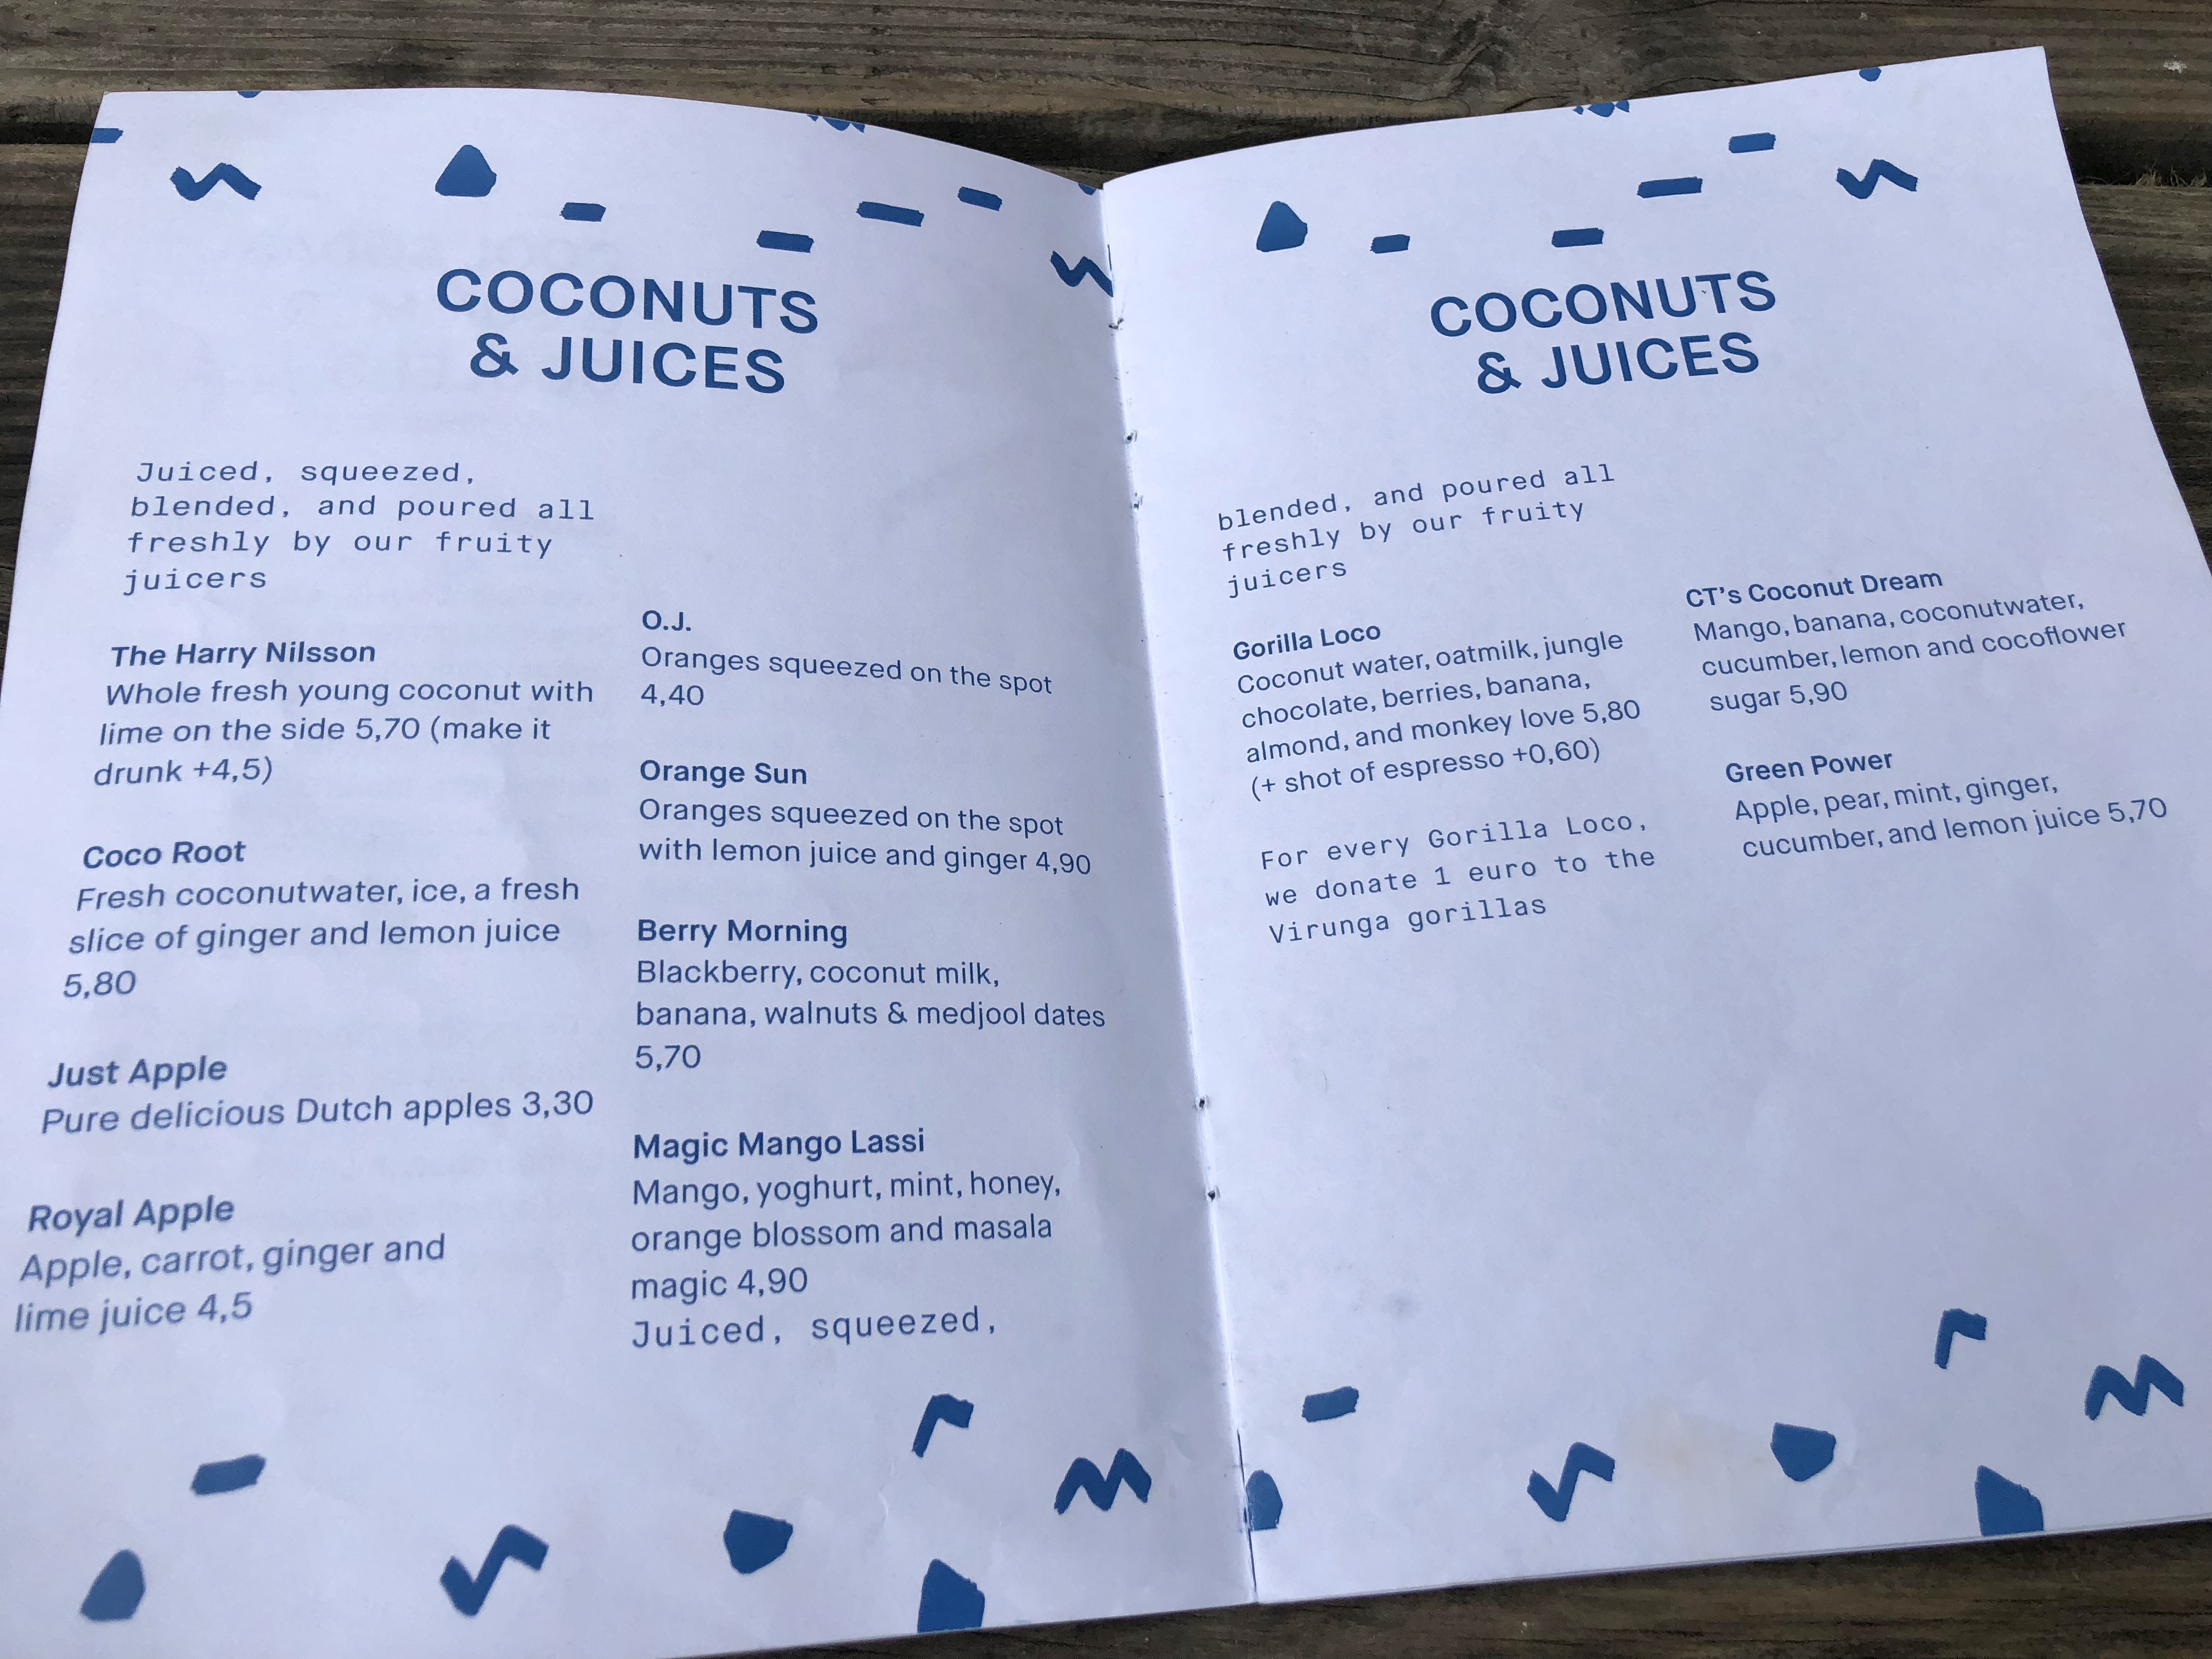 COCONUTS
& JUICES
Juiced, squeezed,
blended, and poured all
freshly by our fruity
juicers
The Harry Nilsson
Whole fresh young coconut with
lime on the side 5,70 (make it
drunk +4,5)
Coco Root
Fresh coconutwater, ice, a fresh
slice of ginger and lemon juice
5,80
Just Apple
Pure delicious Dutch apples 3,30
Royal Apple
Apple, carrot, ginger and
lime juice 4,5
O.J.
Oranges squeezed on the spot
4,40
Orange Sun
Oranges squeezed on the spot
with lemon juice and ginger 4,90
Berry Morning
Blackberry, coconut milk,
banana, walnuts & medjool dates
5,70
Magic Mango Lassi
Mango, yoghurt, mint, honey,
orange blossom and masala
magic 4,90
Juiced, squeezed,
COCONUTS
& JUICES
blended, and poured all
freshly by our fruity
juicers
Gorilla Loco
Coconut water, oatmilk, jungle
chocolate, berries, banana,
almond, and monkey love 5,80
(+ shot of espresso +0,60)
For every Gorilla Loco,
we donate 1 euro to the
Virunga gorillas
CT's Coconut Dream
Mango, banana, coconutwater,
cucumber, lemon and cocoflower
sugar 5,90
Green Power
Apple, pear, mint, ginger,
cucumber, and lemon juice 5,70